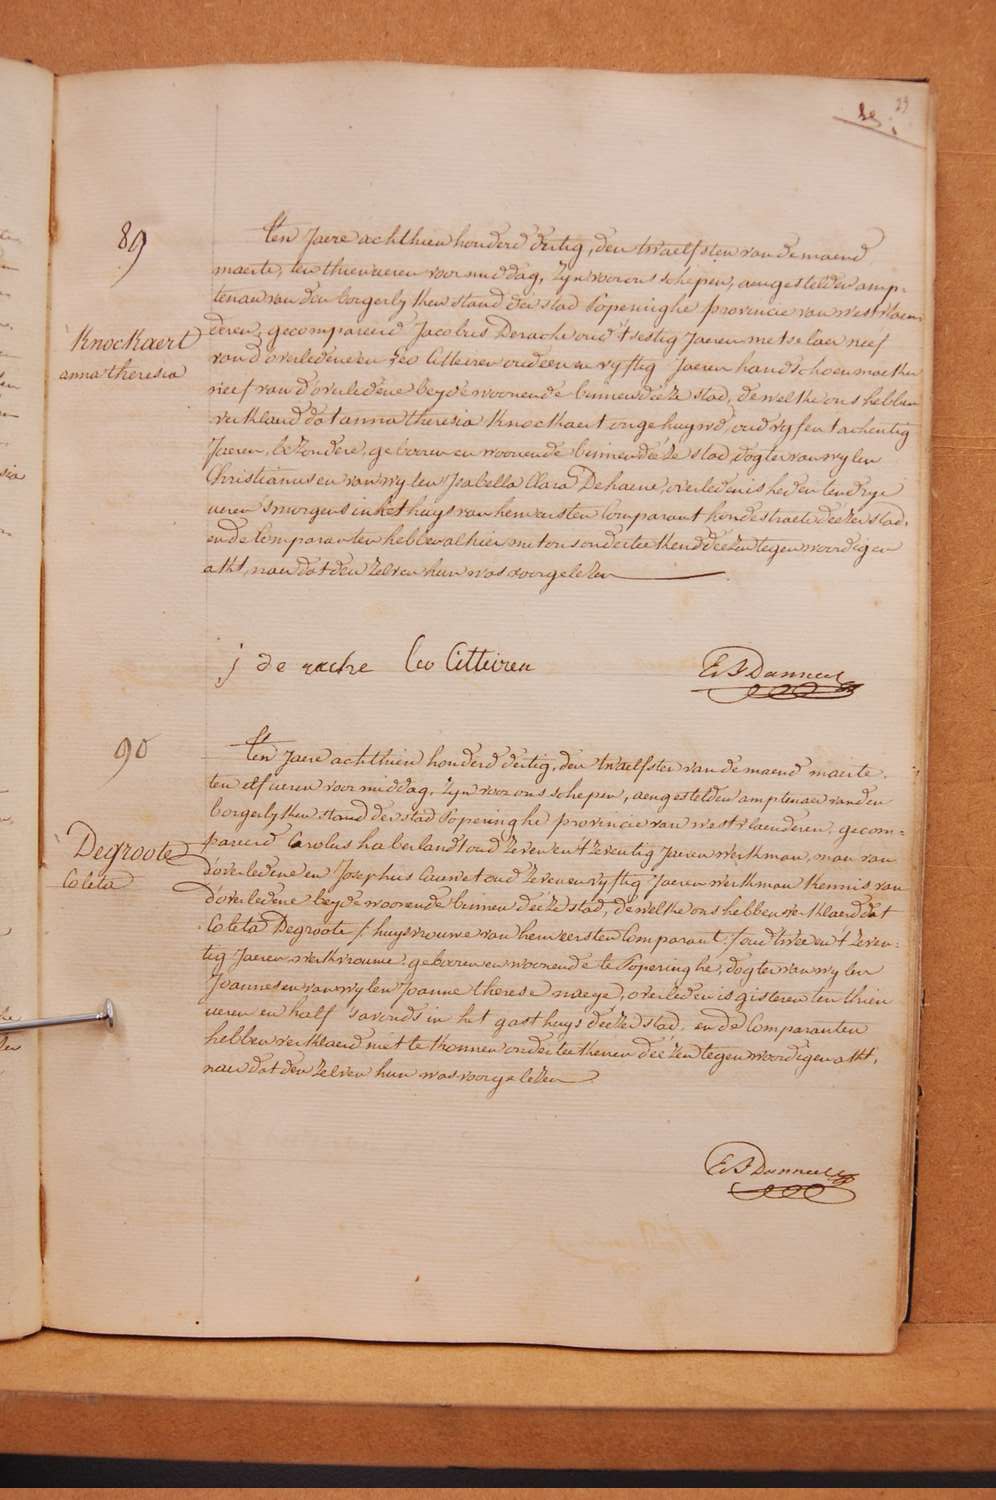 23
89
Knockaert
anna theresia
Ten Jaere achthien honderd dertig, den twaelfsten van de maend
maerte, ten thien ueren voormiddag, zijn voor ons schepen, aengestelden amp-
tenaer van den borgerlyken stand der stad Poperinghe provincie van westvlaen
deren, gecompareerd Jacobus Derache oud t'sestig Jaeren metselaer neef
van d'overledene en Leo Citteiren oud een en vyftig Jaeren handschoenmaeker
neef van d'overledene beyde woonende binnen deéze stad, de welke ons hebben
verklaerd dat anna theresia Knockaert ongehuywd, oud vyf en tachentig
Jaeren, bezondere, gebooren en woonende binnen deéze stad, dogter van wylen
Christianus en van wylen Isabella Clara Dehaene, overleden is heden ten drye
ueren s'morgens in het huys van hem eersten Comparant hondestraete deézer stad,
en de Comparanten hebben alhier met ons onderteekend deézen tegenwoordigen
akt, naer dat den zelven hun was voorgelezen
j de rache Leo Citteiren
90
Degroote
Coleta
Ten Jaere achthien honderd dertig, den twaelfsten van de maend maerte,
ten elf ueren voormiddag, zyn voor ons schepen, aengestelden amptenaer van den
borgerlyken stand der stad Poperinghe provincie van westvlaenderen, gecom-
pareerd Carolus haberlandt oud zeven en t'zeventig Jaeren werkman, man van
d'overledene en Josephus Cauwet oud zeven en vyftig Jaeren werkman kennis van
d'overledene beyde woonende binnen deéze stad, de welke ons hebben verklaerd dat
Coleta Degroote /: huysvrouwe van hem eersten Comparant :/ oud twee en t'zeven-
tig Jaeren werkvrouwe, gebooren en woonende te Poperinghe, dogter van wylen
Joannes en van wylen Joanne therese maeye, overleden is gisteren ten thien
ueren en half s'avonds in het gasthuys deézer stad, en de Comparanten
hebben verklaerd niet te konnen onderteekenen deézen tegenwoordigen akt,
naer dat den zelven hun was voorgelezen